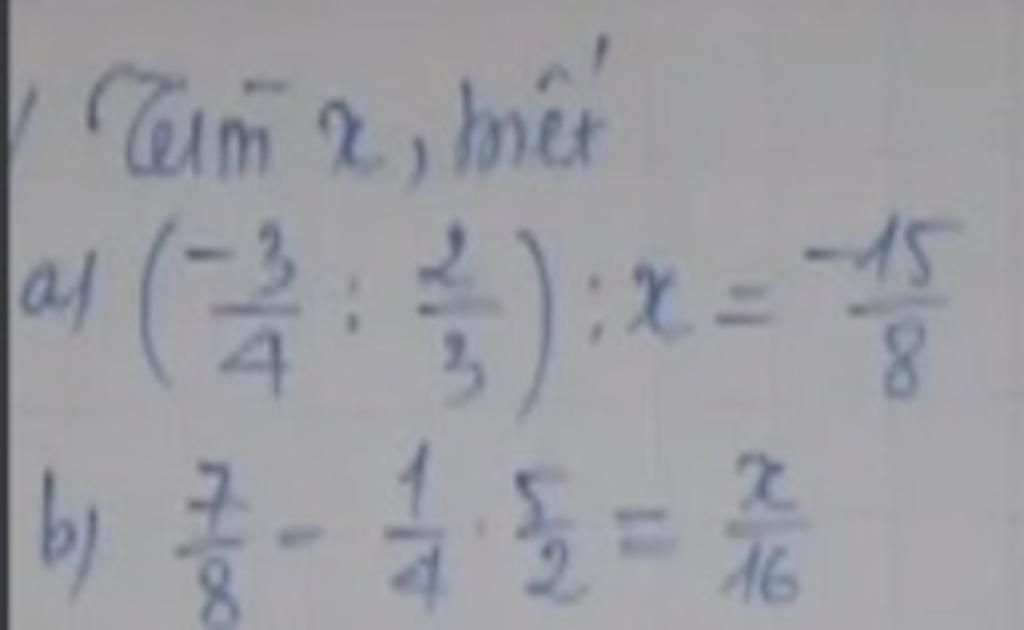 Tìm x, biết
a) (-3/4 : 2/3) : x = -15/8
b) 7/8 - 1/4 . 5/2 = x/16